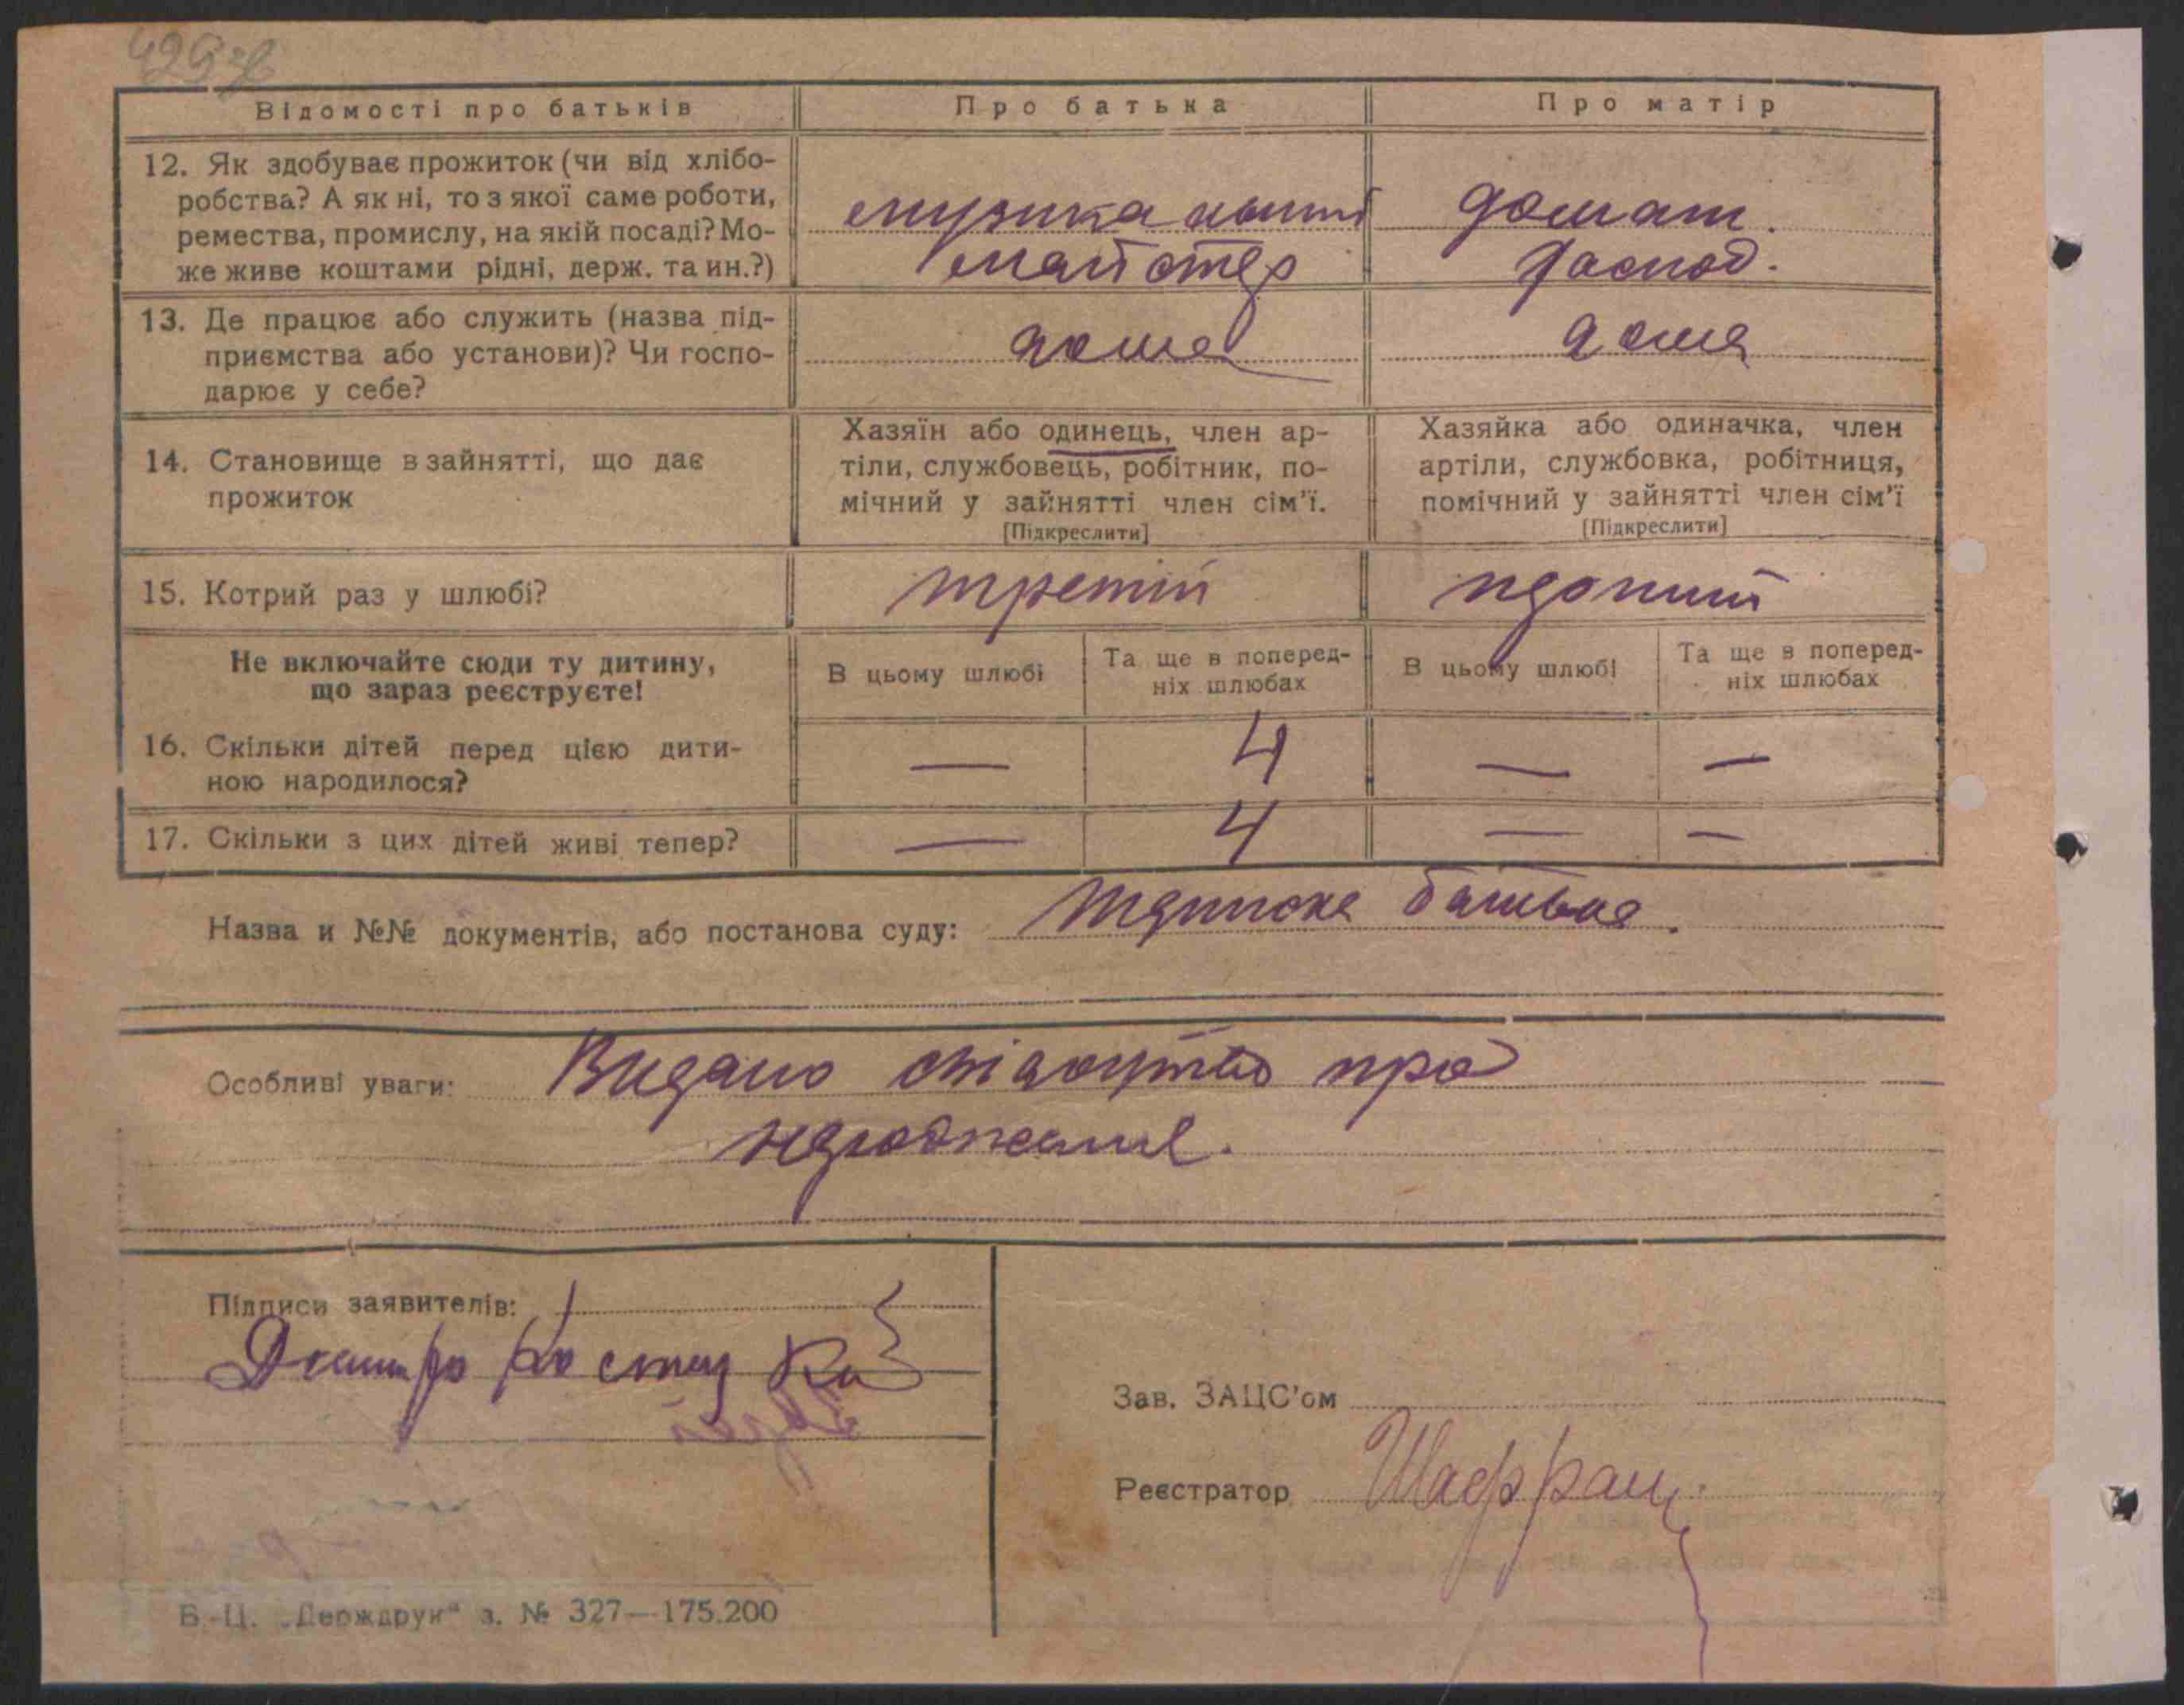 429
Відомості про батьків
Про батька
Про матір
12. Як здобуває прожиток (чи від хлібо-
робства? А як ні, то з якої саме роботи,
ремества, промислу, на якій посаді? Мо-
же живе коштами рідні, держ. та ин.?)
майстер
домат.
господ.
13. Де працює або служить (назва під-
приємства або установи)? Чи госпо-
дарює у себе?
дома
дома
14. Становище в зайнятті, що дає
прожиток
Хазяїн або одинець, член ар-
тіли, службовець, робітник, по-
мічний у зайнятті член сім'ї.
[Підкреслити]
Хазяйка або одиначка, член
артіли, службовка, робітниця,
помічний у зайнятті член сім'ї
[Підкреслити]
15. Котрий раз у шлюбі?
третій
перший
Не включайте сюди ту дитину,
що зараз реєструєте!
В цьому шлюбі
Та ще в поперед-
ніх шлюбах
В цьому шлюбі
Та ще в поперед-
ніх шлюбах
16. Скільки дітей перед цією дити-
ною народилося?
—
4
—
—
17. Скільки з цих дітей живі тепер?
—
4
—
—
Назва и №№ документів, або постанова суду:
батька.
Особливі уваги: Видано свідоцтво про
народження.
Підписи заявителів:
Дмитро
Зав. ЗАЦС'ом
Реєстратор
В.-Ц. „Держдрук" з. № 327—175.200